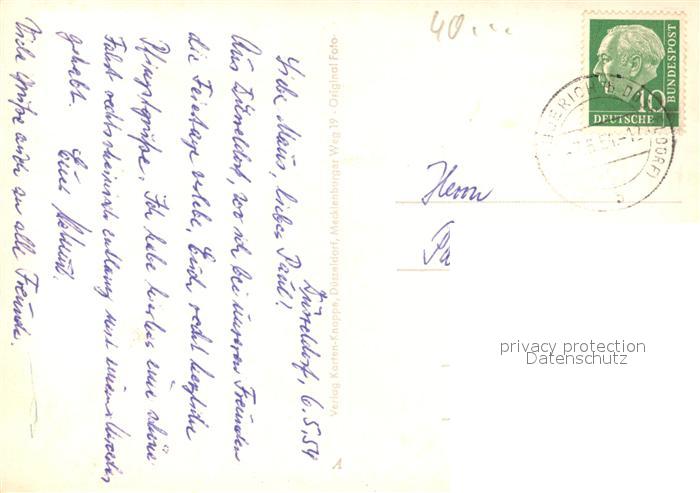 40...
Düsseldorf, 6.5.54
Liebe Maus, lieber Paul!
Aus Düsseldorf, wo ich bei unseren Freunden
die Feiertage verlebe, Euch recht herzliche
Pfingstgrüße. Ich habe hierher eine schöne
Fahrt rechtsrheinisch entlang mit
gehabt.
Euer
Viele Grüße auch an alle Freunde.
Verlag Karten-Knoppe, Düsseldorf, Mecklenburger Weg 19 · Original Foto
A
DEUTSCHE
BUNDESPOST
10
b
Herrn
Pa
privacy protection
Datenschutz